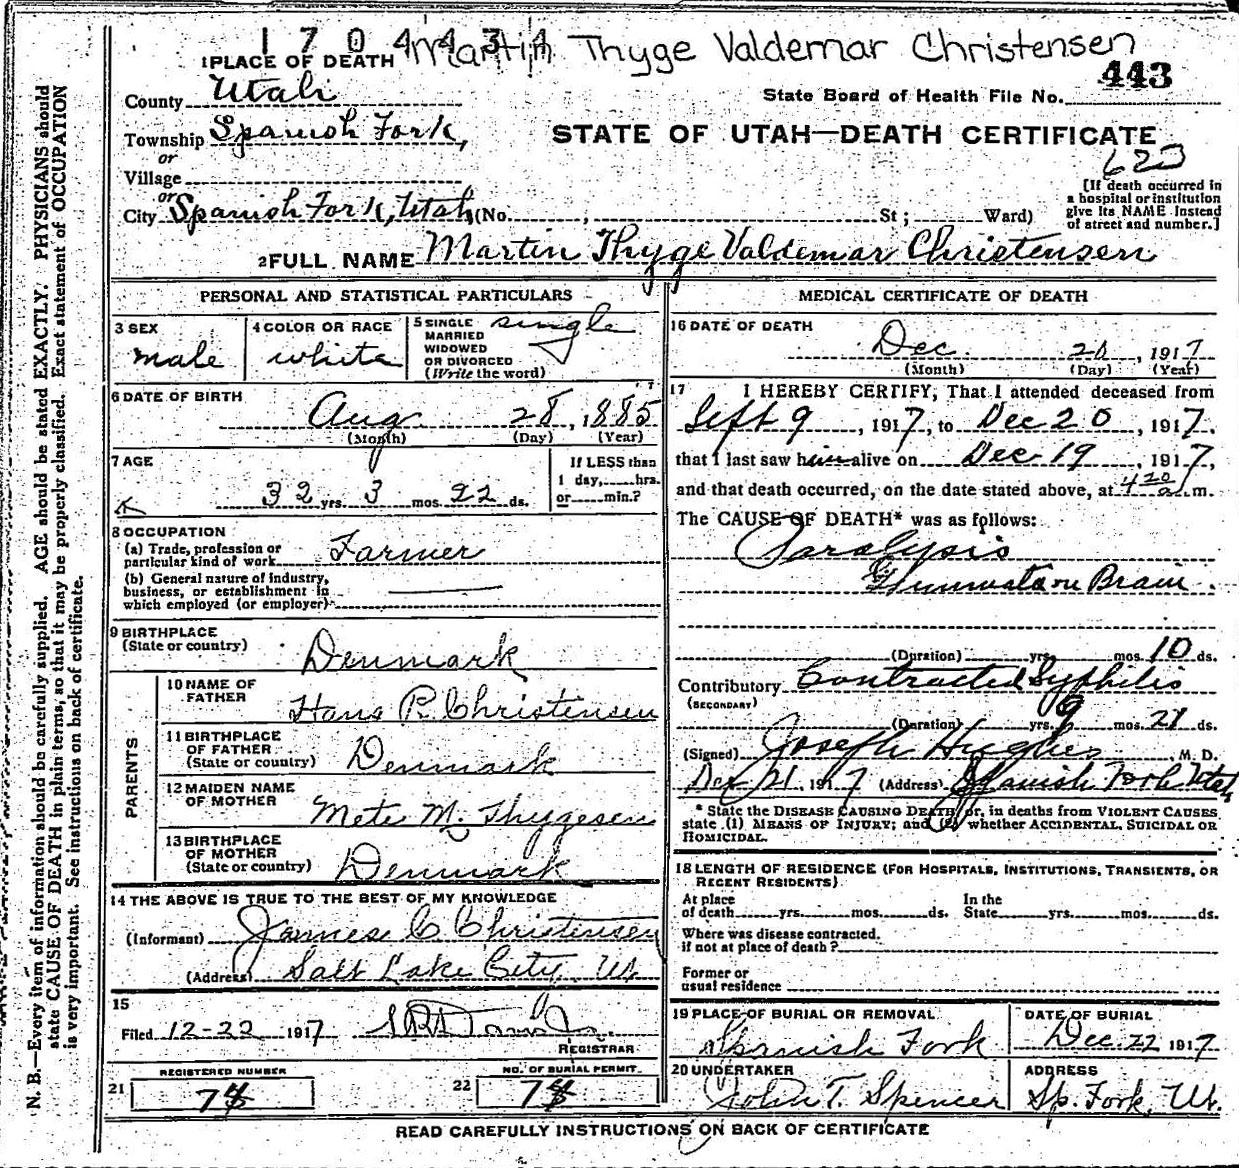 1704434 Martin Thyge Valdemar Christensen
1 PLACE OF DEATH
443
County Utah
State Board of Health File No.
Township Spanish Fork,
STATE OF UTAH—DEATH CERTIFICATE
or
Village
623
[If death occurred in a hospital or institution give its NAME instead of street and number.]
or
City Spanish Fork, Utah (No. , St ; Ward)
2 FULL NAME Martin Thyge Valdemar Christensen
PERSONAL AND STATISTICAL PARTICULARS
3 SEX
male
4 COLOR OR RACE
white
5 SINGLE
MARRIED
WIDOWED
OR DIVORCED
(Write the word)
single
6 DATE OF BIRTH
Aug 28, 1885
(Month) (Day) (Year)
7 AGE
32 yrs. 3 mos. 22 ds.
If LESS than
1 day, hrs.
or min.?
8 OCCUPATION
(a) Trade, profession or
particular kind of work Farmer
(b) General nature of industry,
business, or establishment in
which employed (or employer)
9 BIRTHPLACE
(State or country) Denmark
PARENTS
10 NAME OF
FATHER Hans P. Christensen
11 BIRTHPLACE
OF FATHER
(State or country) Denmark
12 MAIDEN NAME
OF MOTHER Mete M. Thygesen
13 BIRTHPLACE
OF MOTHER
(State or country) Denmark
14 THE ABOVE IS TRUE TO THE BEST OF MY KNOWLEDGE
(Informant) James C. Christensen
(Address) Salt Lake City Ut
15
Filed 12-22 1917
REGISTRAR
REGISTERED NUMBER
21
NO. OF BURIAL PERMIT
22
MEDICAL CERTIFICATE OF DEATH
16 DATE OF DEATH
Dec. 20, 1917
(Month) (Day) (Year)
17 I HEREBY CERTIFY, That I attended deceased from
Sept 9, 1917, to Dec 20, 1917.
that I last saw him alive on Dec 19, 1917,
and that death occurred, on the date stated above, at 4 20 a. m.
The CAUSE OF DEATH* was as follows:
Paralysis
Brain.
(Duration) yrs. mos. 10 ds.
Contributory Contracted Syphilis
(SECONDARY)
(Duration) yrs. 9 mos. 21 ds.
(Signed) Joseph Hughes, M. D.
Dec 21, 1917 (Address) Spanish Fork Utah
* State the DISEASE CAUSING DEATH, or, in deaths from VIOLENT CAUSES
state (1) MEANS OF INJURY; and (2) whether ACCIDENTAL, SUICIDAL OR
HOMICIDAL.
18 LENGTH OF RESIDENCE (FOR HOSPITALS, INSTITUTIONS, TRANSIENTS, OR
RECENT RESIDENTS).
At place In the
of death yrs. mos. ds. State yrs. mos. ds.
Where was disease contracted.
if not at place of death?
Former or
usual residence
19 PLACE OF BURIAL OR REMOVAL
Spanish Fork
DATE OF BURIAL
Dec. 22 1917
20 UNDERTAKER
John T. Spencer
ADDRESS
Sp. Fork, Ut.
READ CAREFULLY INSTRUCTIONS ON BACK OF CERTIFICATE
N. B.—Every item of information should be carefully supplied. AGE should be stated EXACTLY. PHYSICIANS should
state CAUSE OF DEATH in plain terms, so that it may be properly classified. Exact statement of OCCUPATION
is very important. See instructions on back of certificate.